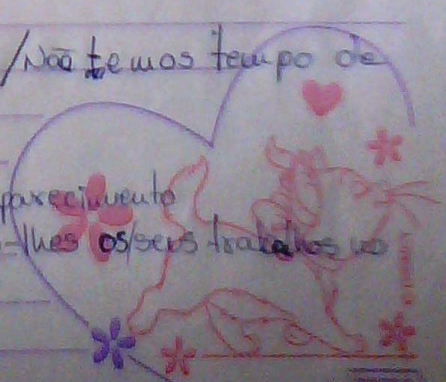 /Não temos tempo de
parecimento
-lhes os/seus trabalhos no